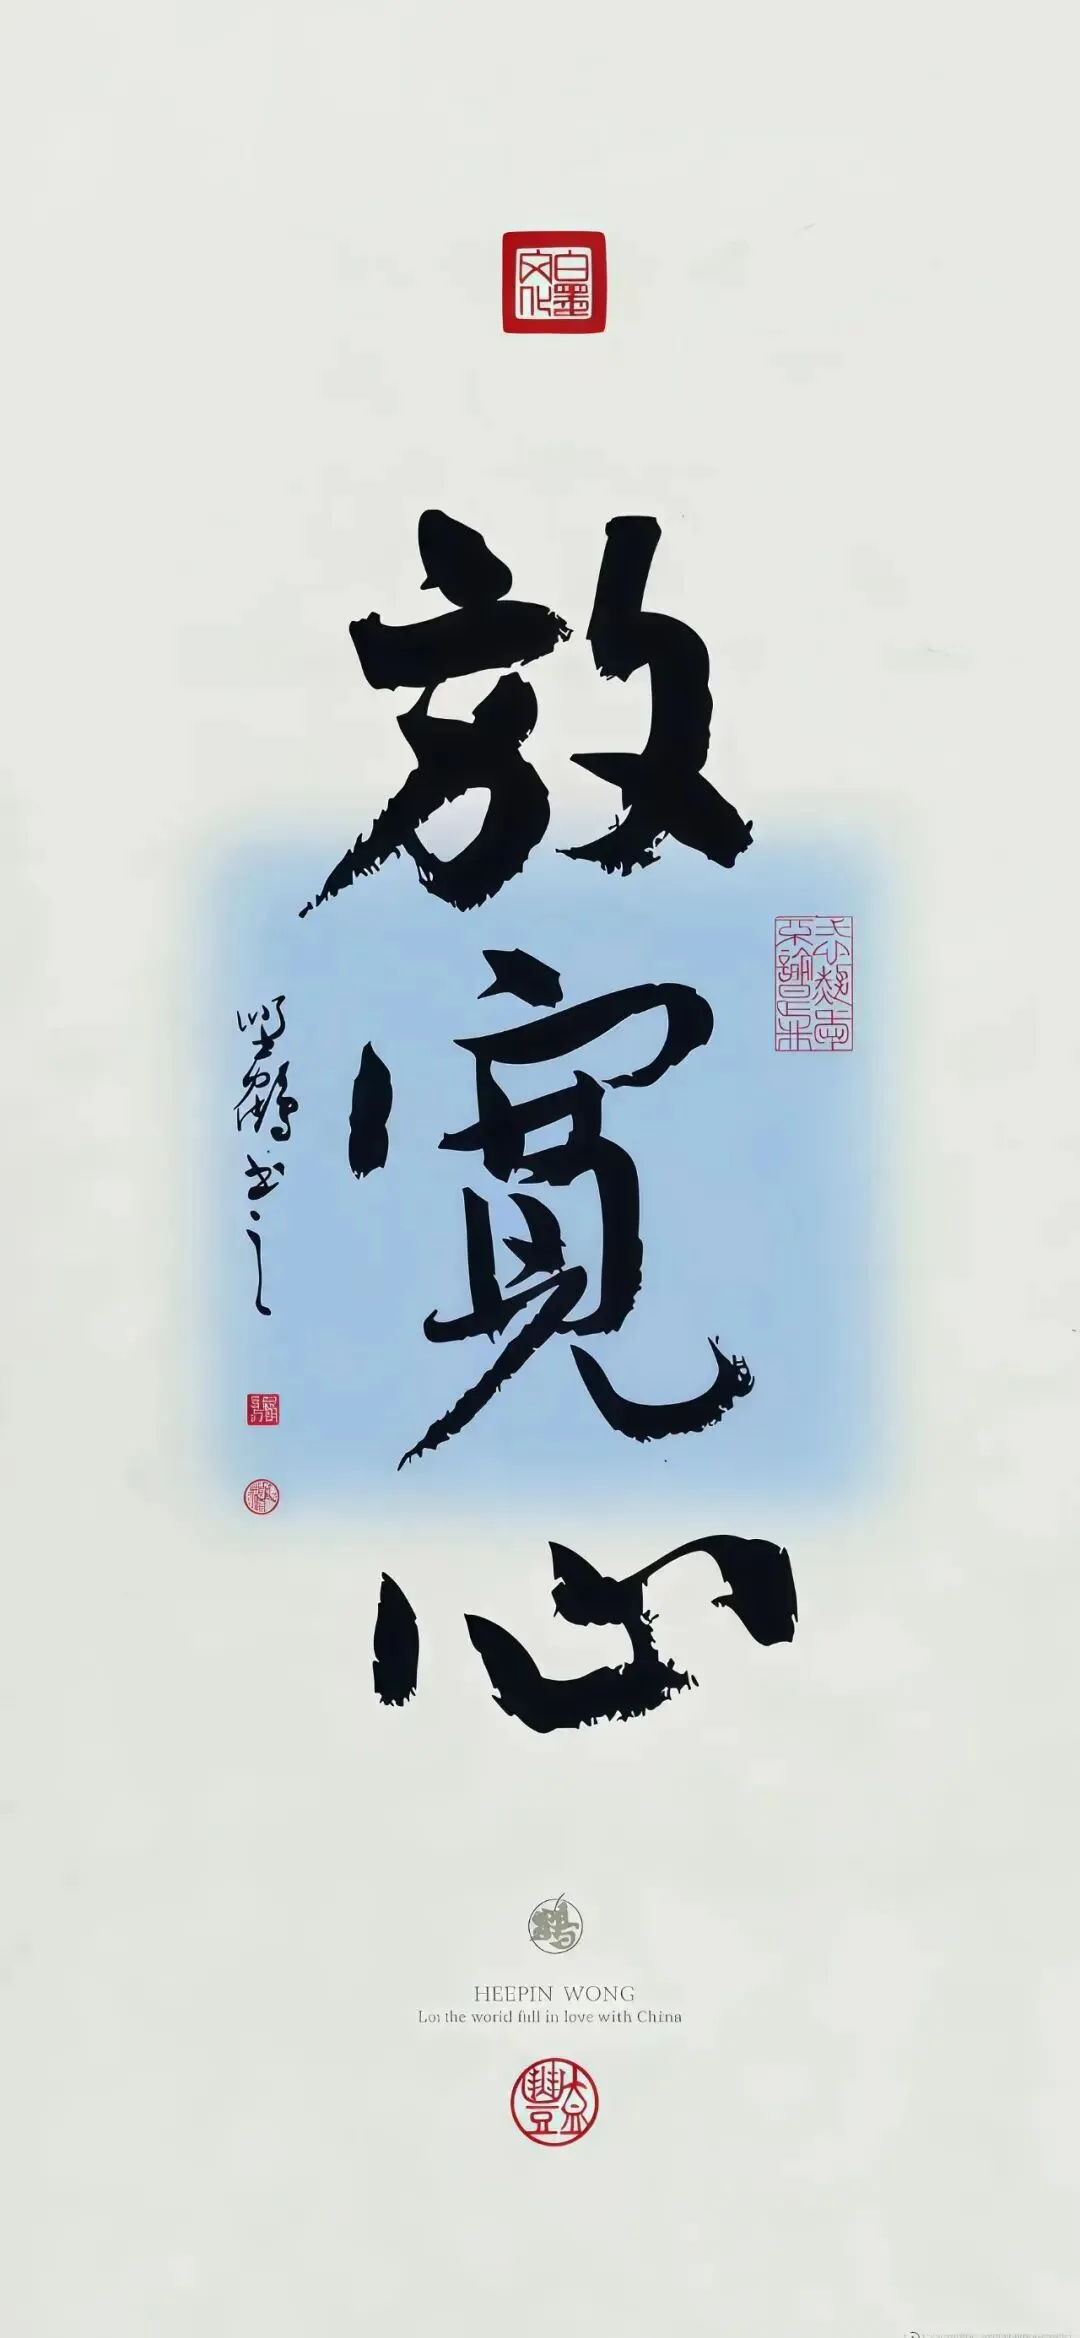 白墨文化
放寬心
鹤书之
HEEPIN WONG
Loi the world full in love with China